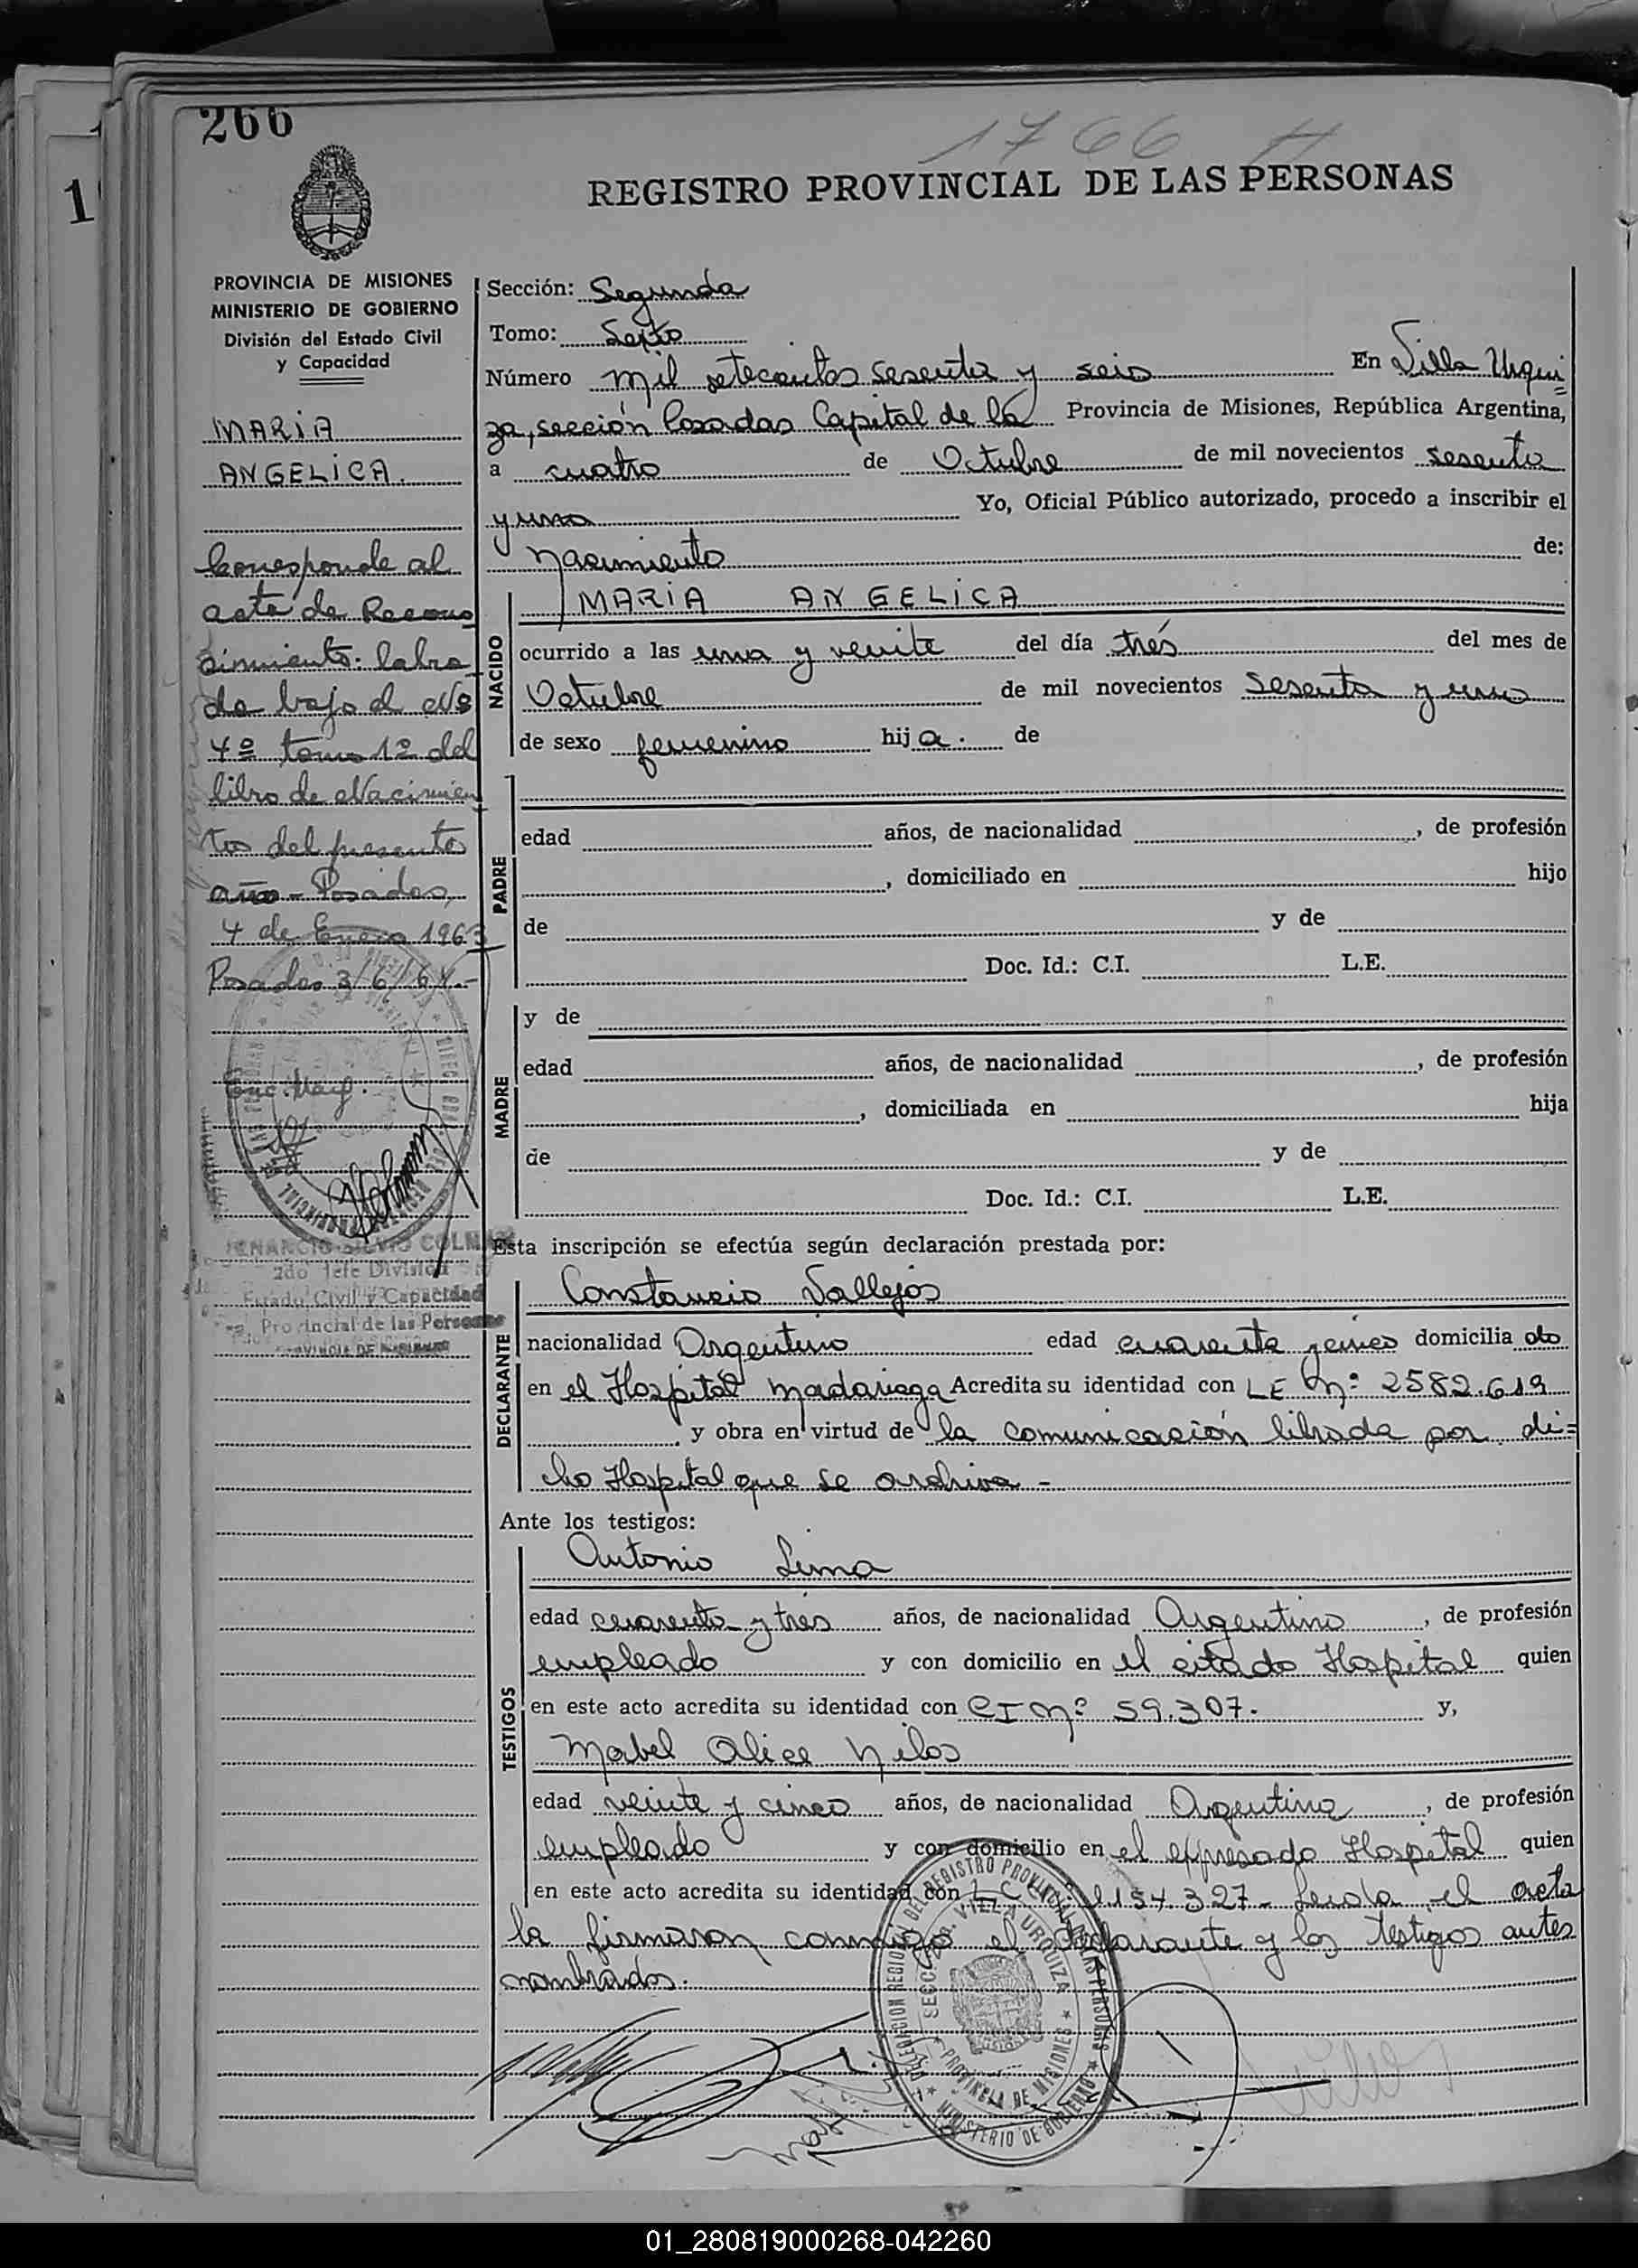 266
1766
REGISTRO PROVINCIAL DE LAS PERSONAS
PROVINCIA DE MISIONES
MINISTERIO DE GOBIERNO
División del Estado Civil
y Capacidad
MARIA
ANGELICA.
Corresponde al
acta de Recono
cimiento labra
da bajo el Nº
4º tomo 1º del
libro de Nacimien
tos del presente
año - Posadas,
4 de Enero 1963
Posadas 3/6/64.-
2do Jefe División
Estado Civil y Capacidad
Provincial de las Personas
Sección: Segunda
Tomo: Sexto
Número mil setecientos sesenta y seis En Villa Urqui
za, sección Posadas Capital de la Provincia de Misiones, República Argentina,
a cuatro de Octubre de mil novecientos sesenta
y uno Yo, Oficial Público autorizado, procedo a inscribir el
Nacimiento de:
NACIDO
MARIA ANGELICA
ocurrido a las una y veinte del día trés del mes de
Octubre de mil novecientos sesenta y uno
de sexo femenino hija. de
PADRE
edad años, de nacionalidad , de profesión
, domiciliado en hijo
de y de
Doc. Id.: C.I. L.E.
MADRE
y de
edad años, de nacionalidad , de profesión
, domiciliada en hija
de y de
Doc. Id.: C.I. L.E.
Esta inscripción se efectúa según declaración prestada por:
DECLARANTE
Constancio Vallejos
nacionalidad Argentino edad cuarenta y cinco domicilia do
en el Hospital Madariaga Acredita su identidad con LE Nº 2582.619
y obra en virtud de la comunicación librada por di=
cho Hospital que se archiva -
Ante los testigos:
TESTIGOS
Antonio Lima
edad cuarenta y trés años, de nacionalidad Argentino , de profesión
empleado y con domicilio en el citado Hospital quien
en este acto acredita su identidad con CI Nº 59.307. y,
Mabel Alice Nilos
edad veinte y cinco años, de nacionalidad Argentina , de profesión
empleado y con domicilio en el expresado Hospital quien
en este acto acredita su identidad con L C 154.327- Leida el acta
la firmaron conmigo el declarante y los testigos antes
nombrados.
DELEGACION REGIONAL DEL REGISTRO PROVINCIAL DE LAS PERSONAS
SECC. VILLA URQUIZA
PROVINCIA DE MISIONES
MINISTERIO DE GOBIERNO
01_280819000268-042260